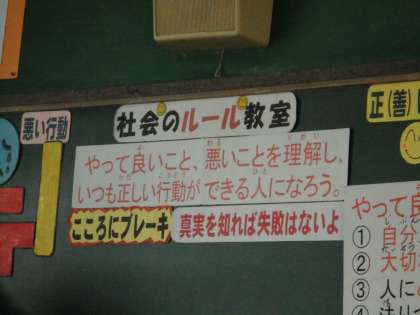 悪い行動
社会のルール教室
正(善)し
やって良いこと、悪いことを理解し、
いつも正しい行動ができる人になろう。
こころにブレーキ
真実を知れば失敗はないよ
やって良
① 自分
② 大切
③ 人に
④